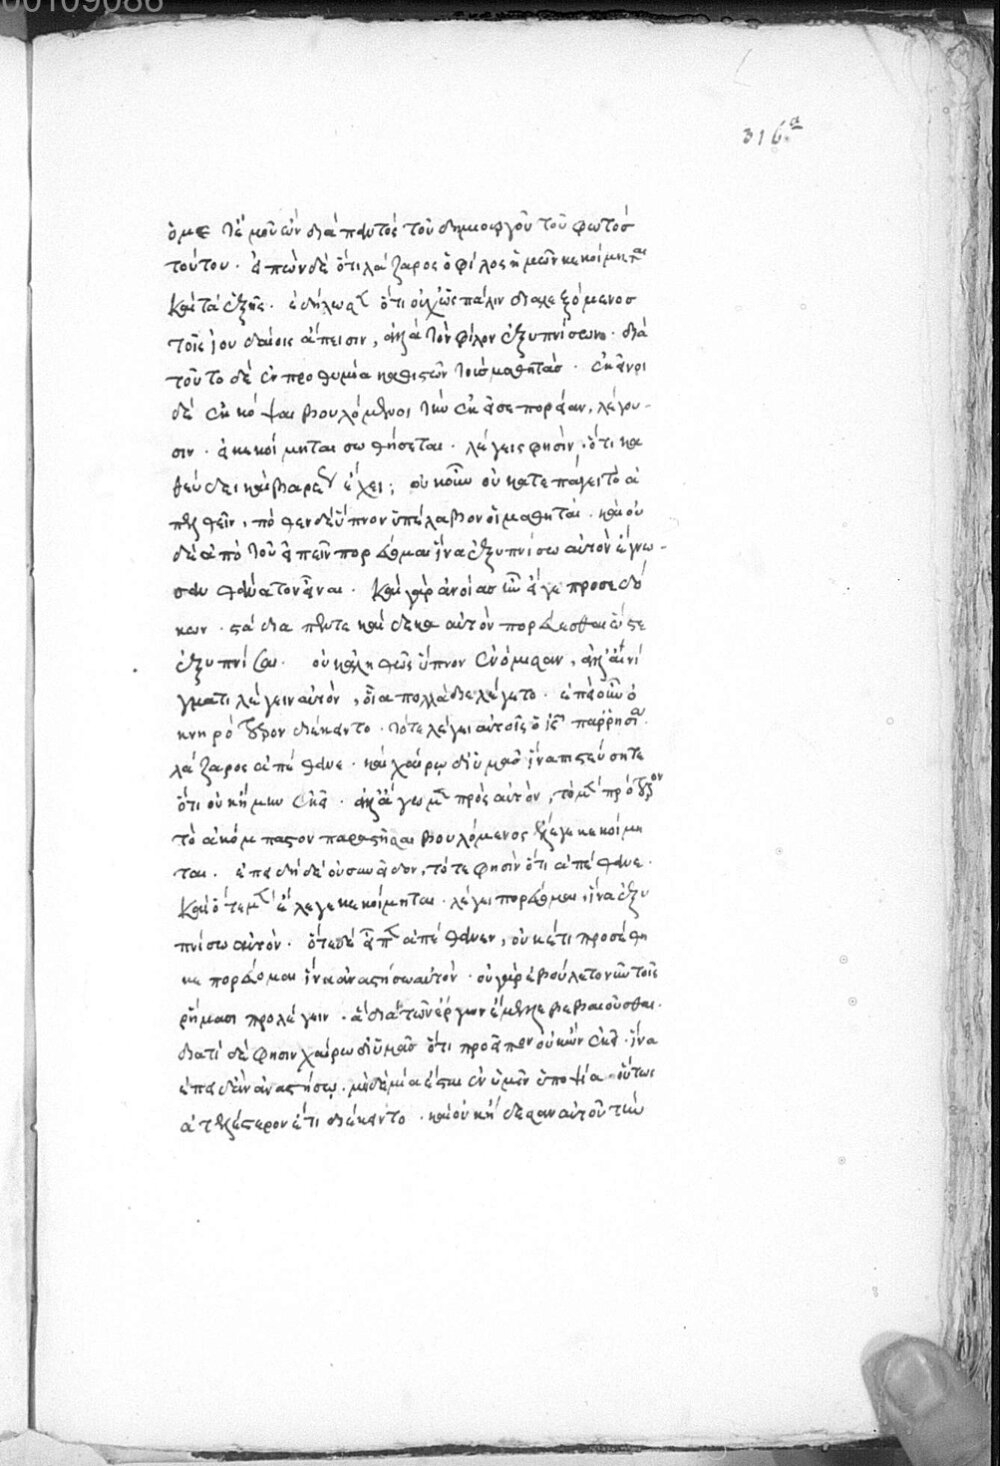 00109086
316.α
ὁ μετ' ἐμοῦ ὢν διὰ παντὸς τοῦ δημιουργοῦ τοῦ φωτὸς
τούτου. εἰπὼν δὲ ὅτι λάζαρος ὁ φίλος ἡμῶν κεκοίμηται
καὶ τὰ ἑξῆς. ἐδήλωσεν ὅτι οὐχ ὡς πάλιν διαλεξόμενος
τοῖς ἰουδαίοις ἄπεισιν, ἀλλὰ τὸν φίλον ἐξυπνίσων. διὰ
τοῦτο δὲ ἐν προθυμία καθιστῶν τοὺς μαθητάς. ἐκεῖνοι
δὲ ἐκκόψαι βουλόμενοι τὴν ἐκεῖσε πορείαν, λέγου-
σιν. εἰ κεκοίμηται σωθήσεται. λέγεις φησὶν, ὅτι κα
θεύδει καὶ ἔχει; οὐκοῦν οὐ κατεπείγει τὸ ἀ
πελθεῖν. πόθεν δὲ ὕπνον ὑπέλαβον οἱ μαθηταί. καὶ οὐ
δὲ ἀπὸ τοῦ εἰπεῖν πορεύομαι ἵνα ἐξυπνίσω αὐτὸν ἔγνω-
σαν θάνατον εἶναι. καὶ γὰρ ἀνοίας ἦν εἴγε προσεδό
κων. στάδια πεντεκαίδεκα αὐτὸν πορεύεσθαι ὥστε
ἐξυπνίσαι. οὐκ ἀληθῶς ὕπνον ἐνόμισαν, ἀλλ' αἰνί
γματι λέγειν αὐτὸν, οἷα πολλὰ διελέγετο. ἐπεὶ οὖν ὀ
κνηρότερον διέκειντο. τότε λέγει αὐτοῖς ὁ ἰς παρρησία.
λάζαρος ἀπέθανε. καὶ χαίρω δι' ὑμᾶς ἵνα πιστεύσητε
ὅτι οὐκ ἤμην ἐκεῖ. ἀλλ' ἄγωμεν πρὸς αὐτὸν, τὸ μὲν πρότερον
τὸ ἀκόμπαστον παραστῆσαι βουλόμενος ἔλεγε κεκοίμη
ται. ἐπειδὴ δὲ οὐ συνεῖδον, τότε φησὶν ὅτι ἀπέθανε.
καὶ ὅτε μὲν ἔλεγε κεκοίμηται. λέγει πορεύομαι, ἵνα ἐξυ
πνίσω αὐτόν. ὅτε δὲ εἶπεν ἀπέθανεν, οὐκέτι προσέθη
κε πορεύομαι ἵνα ἀναστήσω αὐτόν. οὐ γὰρ ἐβούλετο νῦν τοῖς
ῥήμασι προλέγειν. ἃ διὰ τῶν ἔργων ἔμελλε βεβαιοῦσθαι.
διατί δέ φησιν χαίρω δι' ὑμᾶς ὅτι προεῖπον οὐκ ὢν ἐκεῖ. ἵνα
ἐπειδὰν ἀναστήσω. μηδεμία ἔσται ἐν ὑμῖν ὑποψία. οὕτως
ἀτελέστερον ἔτι διέκειντο. καὶ οὐκ ᾔδεσαν αὐτοῦ τὴν